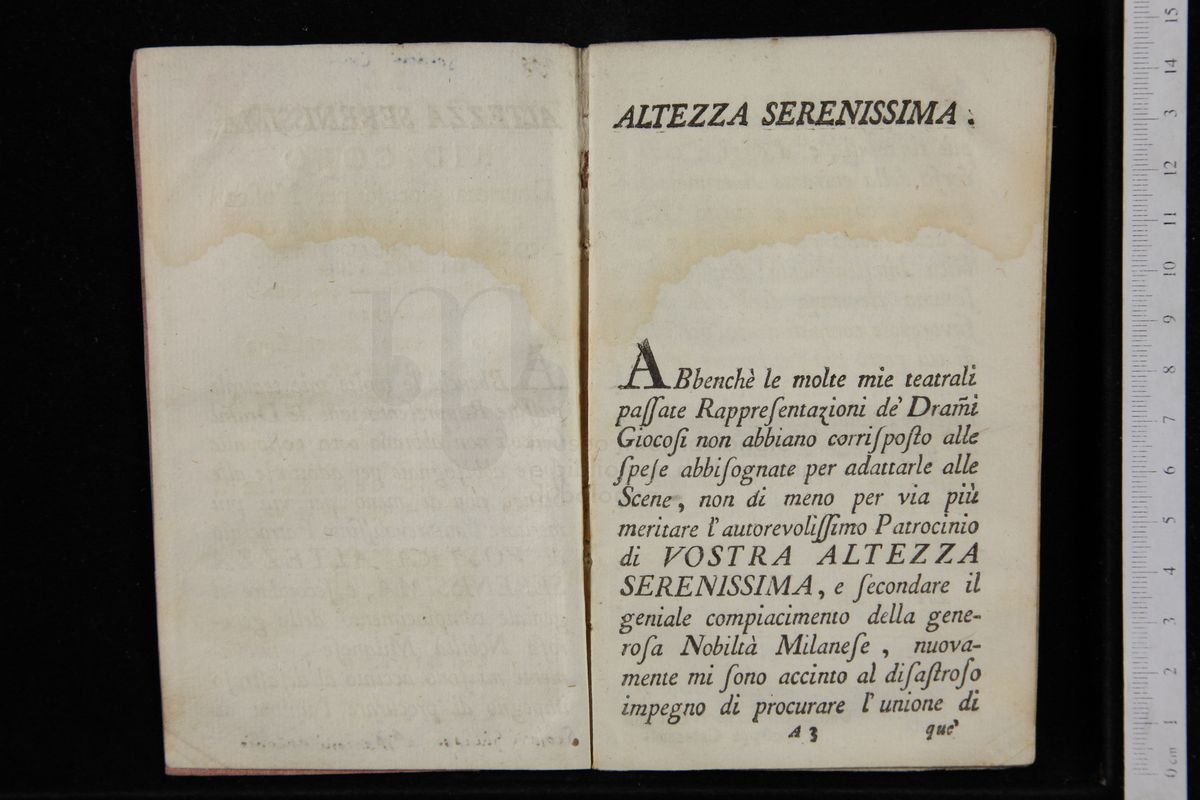 ALTEZZA SERENISSIMA.
ABbenchè le molte mie teatrali
paſſate Rappreſentazioni de' Dram̃i
Giocoſi non abbiano corriſpoſto alle
ſpeſe abbiſognate per adattarle alle
Scene, non di meno per via più
meritare l'autorevoliſſimo Patrocinio
di VOSTRA ALTEZZA
SERENISSIMA, e ſecondare il
geniale compiacimento della gene-
roſa Nobiltà Milaneſe, nuova-
mente mi ſono accinto al diſaſtroſo
impegno di procurare l'unione di
A 3 que'
15
14
13
12
11
10
9
8
7
6
5
4
3
2
1
0 cm